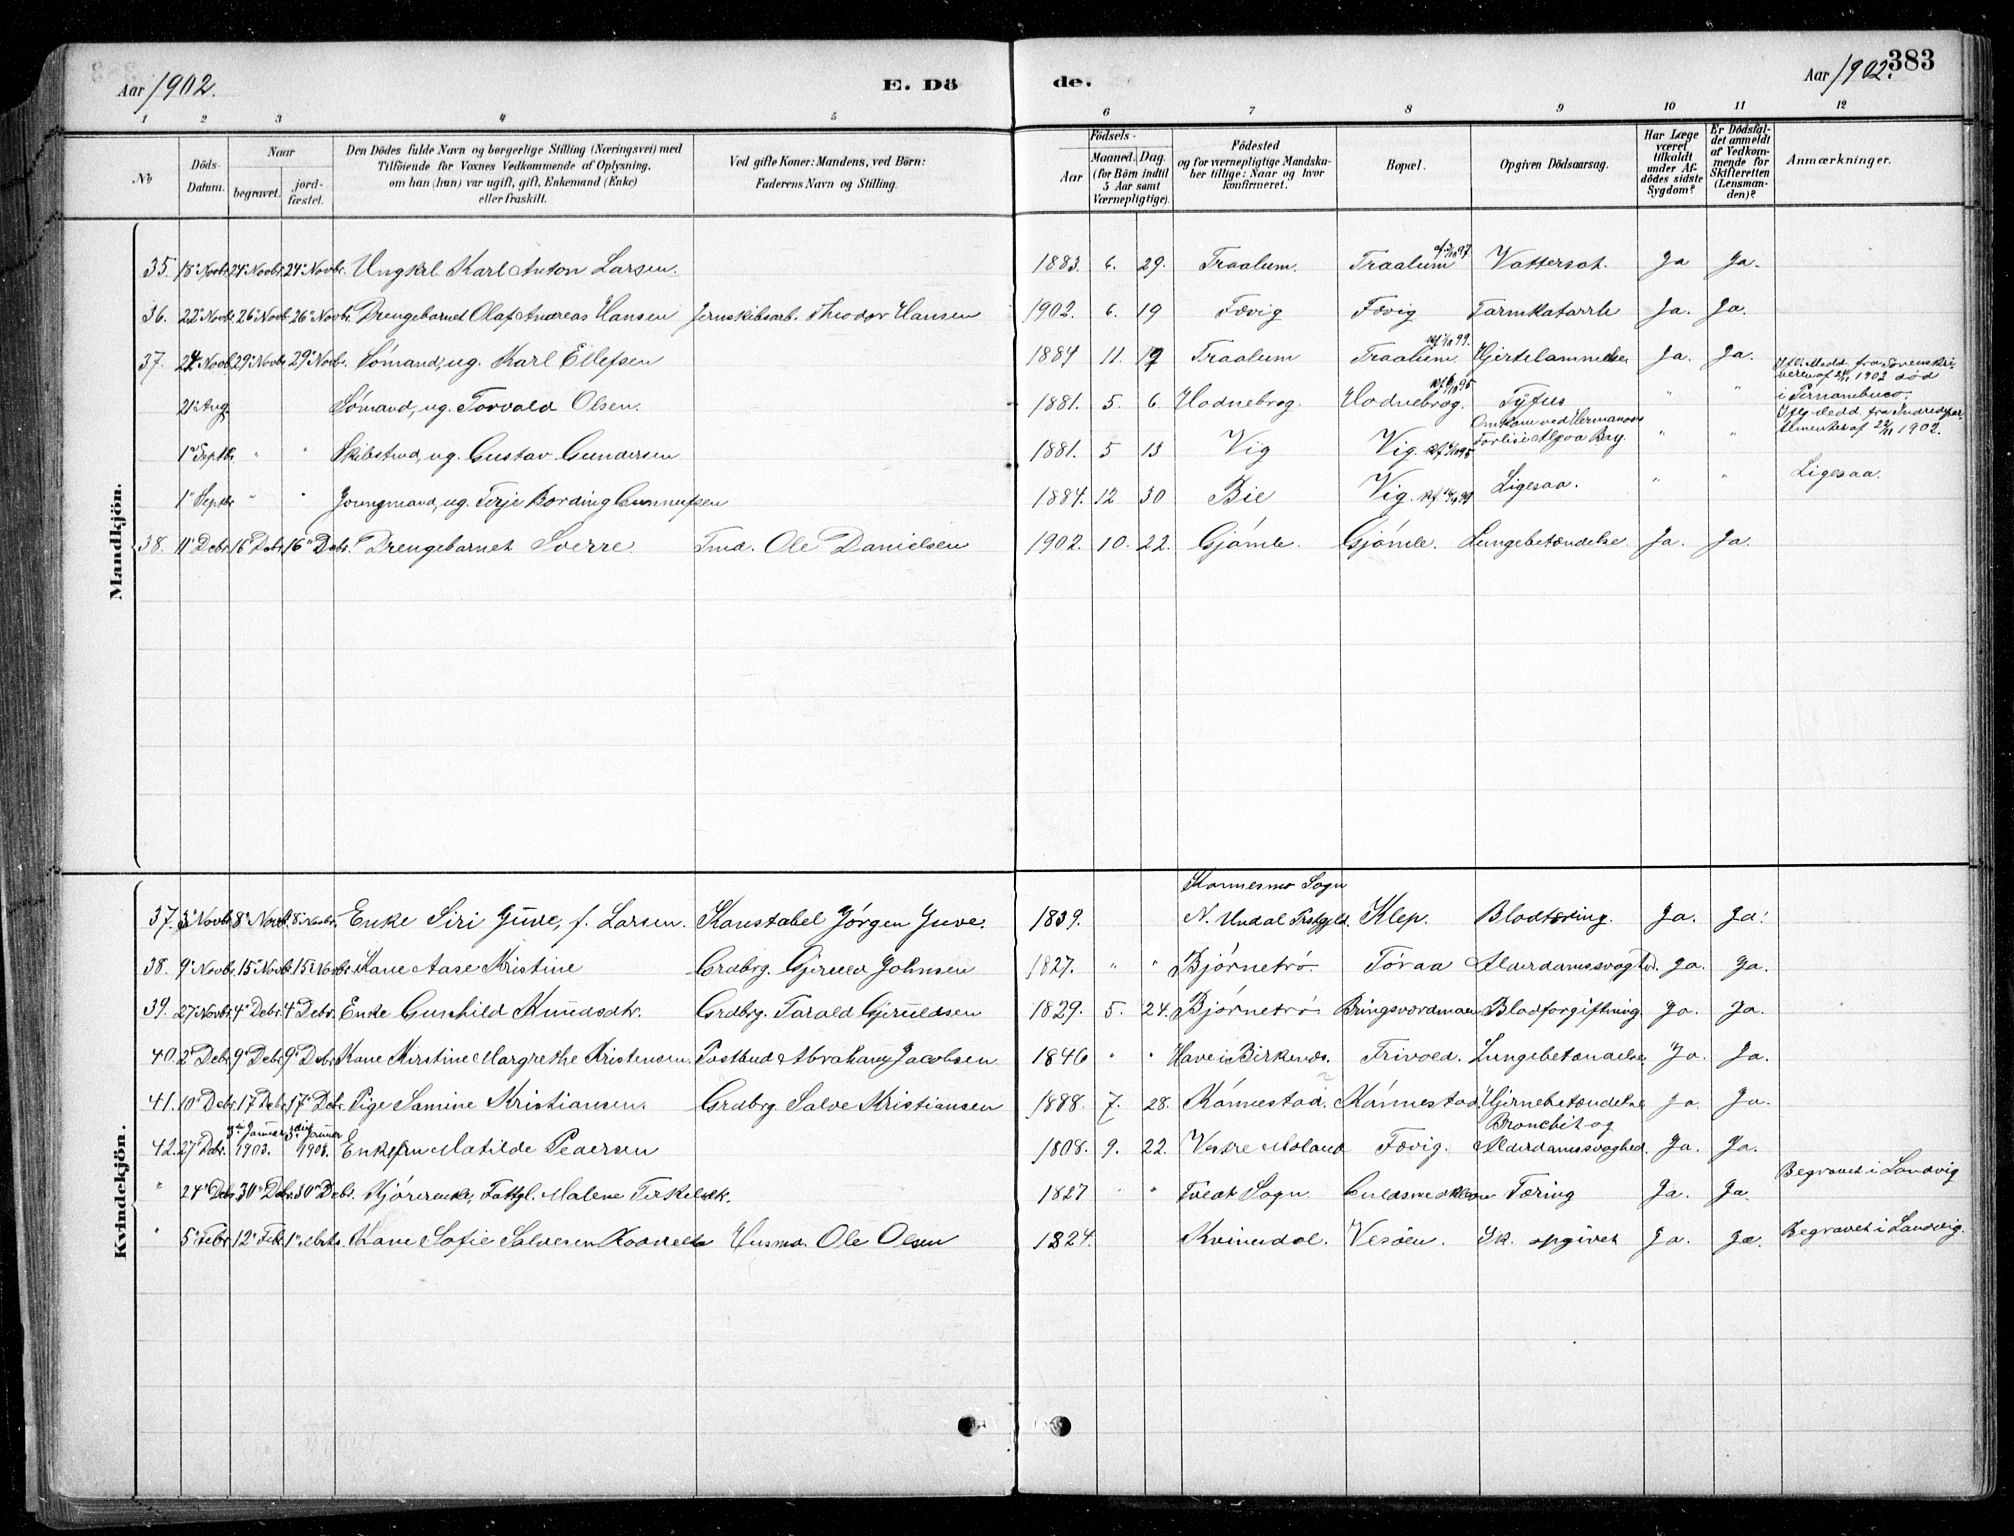 Aar 1902. E. Dö de. Aar 1902. 383
1 2 3 4 5 6 7 8 9 10 11 12
No
Döds-Datum.
Naar
begravet.
jord-fæstet.
Den Dödes fulde Navn og borgerlige Stilling (Næringsvei) med
Tilföiende for Voxnes Vedkommende af Oplysning,
om han (hun) var ugift, gift, Enkemand (Enke)
eller fraskilt.
Ved gifte Koner: Mandens, ved Börn:
Faderens Navn og Stilling.
Födsels-
Aar
Maaned. Dag.
(for Börn indtil
5 Aar samt
Værnepligtige).
Födested
og for værnepligtige Mandska-
ber tillige: Naar og hvor
konfirmeret.
Bopæl.
Opgiven Dödsaarsag.
Har Læge
været
tilkaldt
under Af-
dödes sidste
Sygdom?
Er Dödsfal-
det anmeldt
af Vedkom-
mende for
Skifteretten
(Lensman-
den)?
Anmærkninger.
Mandkjön.
35. 18 Novbr. 24 Novbr. 24 Novbr. Ungkrl Karl Anton Larsen. 1883. 6. 29. Traalum. Traalum Vattersot. Ja Ja.
36. 22 Novbr. 26 Novbr. 26 Novbr. Drengebarnet Olaf Andreas Hansen Jernskibsarb. Theodor Hansen 1902. 6. 19 Fævig Fævig Tarmkatarrh Ja. Ja.
37. 24 Novbr. 29 Novbr. 29 Novbr. Sømand, ug. Karl Ellefsen 1884 11. 17 Traalum Traalum. Hjertelammelse Ja. Ja.
21 Aug. Sømand, ug. Torvald Olsen. 1881. 5. 6. Hodnebrog. Hodnebrog. Tyfus " " Iflg. Medd. fra Sorenskri-
veren af 1902 død
i Pernambuco.
1 Septbr. " " Skibstmd, ug. Gustav Gundersen 1881. 5 13 Vig Vig. Omkom ved Hermanos
Forlis i Algoa Bay. " " Iflg. Medd. fra Indredepar-
tmentet af 1902.
1 Septbr " " Joungmand, ug. Terje Bording Gunnufsen 1884. 12 30 Bie Vig. Ligesaa. " " Ligesaa.
38. 11 Debr. 16 Debr. 16 Debr. Drengebarnet Sverre Tmd. Ole Danielsen 1902. 10. 22. Gjømle. Gjømle. Lungebetændelse Ja. Ja.
Kvindekjön.
37. 3 Novbr. 8 Novbr. 8 Novbr. Enke Siri Juve, f. Larsen. Konstabel Jørgen Juve. 1839. Konnesmo Sogn
N. Undal Prstgjld. Klep. Blodtæring. Ja. Ja.
38. 9 Novbr. 15 Novbr. 15 Novbr. Kone Aase Kristine Grdbrg. Gjeruld Johnsen 1827. " " Bjørnetrø. Tøraa Alderdomssvaghed. Ja. Ja.
39. 27 Novbr. 4 Debr. 4 Debr. Enke Gunhild Knudsdtr. Grdbrg. Tarald Gjeruldsen 1829. 5. 24. Bjørnetrø Bringsværdmoen Blodforgiftning. Ja. Ja.
40. 2 Debr. 9 Debr. 9 Debr. Kone Kirstine Margrethe Kristensen. Postbud Abraham Jacobsen 1846 " " Have i Birkenes. Frivold. Lungebetændelse Ja. Ja.
41. 10 Debr. 17 Debr. 17 Debr. Pige Samine Kristiansen. Grdbrg. Salve Kristiansen 1888. 7. 28. Kønnestad. Kønnestad. Hjernebetændelse Ja. Ja.
42. 27 Debr. 3die Januar 1903. 3die Januar 1903. Enkefru Matilde Pedersen 1808. 9. 22. Vestre Moland Fævig. Bronchit og
Alderdomssvaghed. Ja. Ja.
" 24 Debr. 30 Debr. 30 Debr. Fattgl. Malene Terkelsdtr. 1827 " " Tveit Sogn Tæring Ja. Ja. Begravet i Landvig
" 5 Febr. 12 Febr. 1 Marts. Kone Sofie Salvesen Husmd. Ole Olsen 1824. Kvinesdal. Vesøen. Ik. opgivet Ja. Ja. Begravet i Landvig.